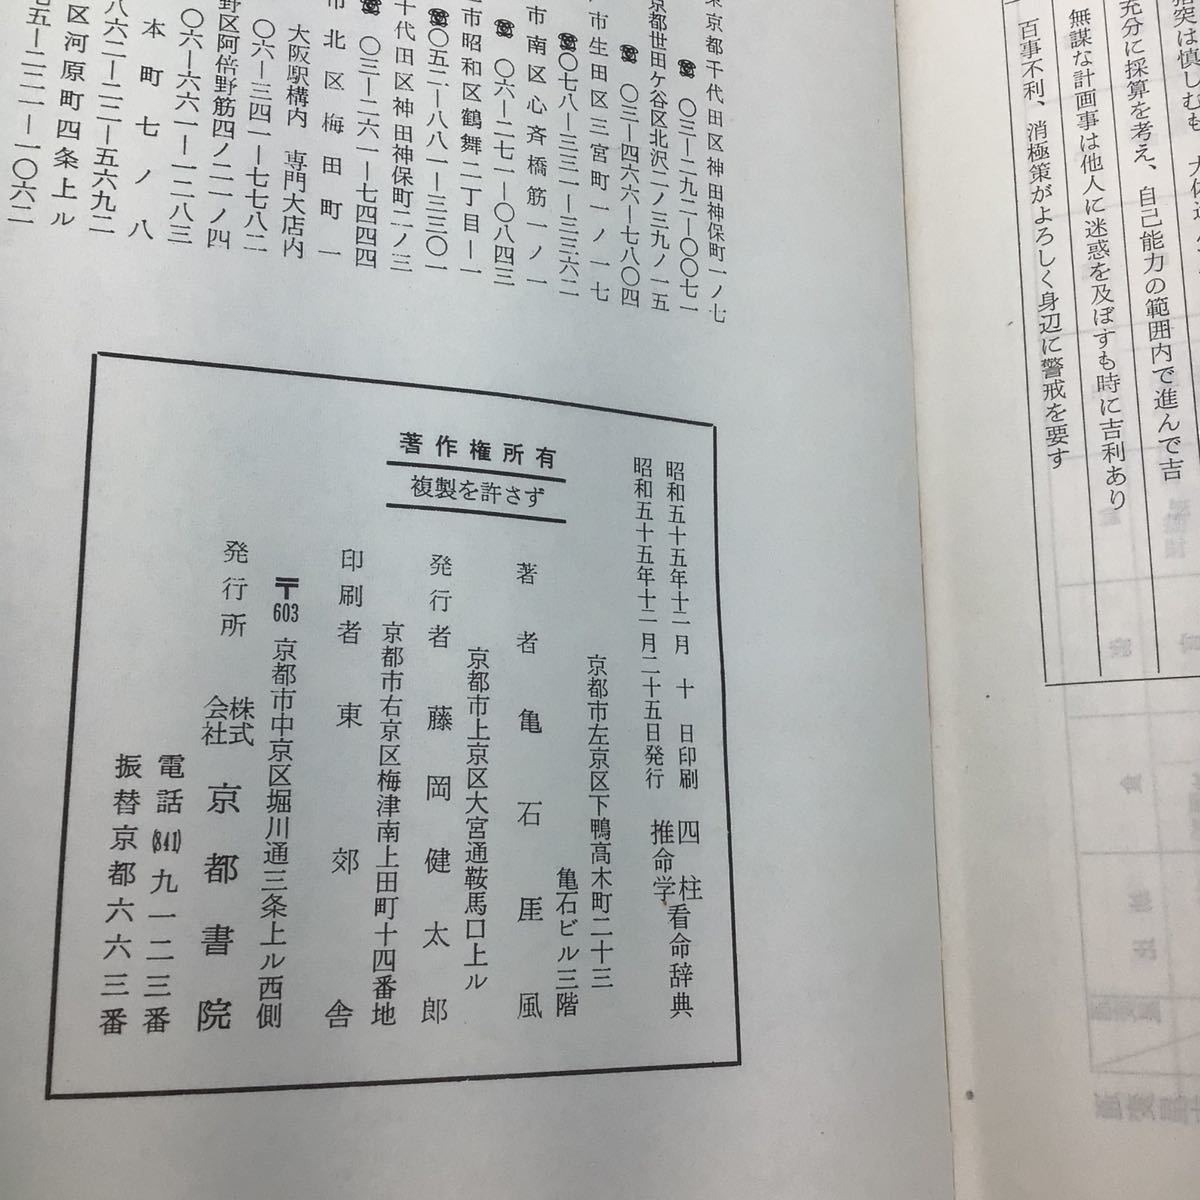 指突は慎しむも、大体
充分に採算を考え、自己能力の範囲内で進んで吉
無謀な計画事は他人に迷惑を及ぼすも時に吉利あり
百事不利、消極策がよろしく身辺に警戒を要す
東京都千代田区神田神保町一ノ七
☎〇三―二九二―〇〇七一
京都世田ケ谷区北沢二ノ三九ノ一五
☎〇三―四六六―七八〇四
市生田区三宮町一ノ一七
☎〇七八―三三一―三三六二
市南区心斉橋筋一ノ一
☎〇六―二七一―〇八四三
市昭和区鶴舞二丁目―一
☎〇五二―八八一―三三〇一
千代田区神田神保町二ノ三
☎〇三―二六一―七四四四
市北区梅田町一
大阪駅構内 専門大店内
〇六―三四一―七七八二
野区阿倍野筋四ノ二一ノ四
〇六―六六一―一二八三
本町七ノ八
八六二―二二―五六九二
区河原町四条上ル
七五―二二一―一〇六二
四柱推命学看命辞典
昭和五十五年十二月十日印刷
昭和五十五年十二月二十五日発行
著作権所有
複製を許さず
京都市左京区下鴨高木町二十三
亀石ビル三階
著者 亀石厓風
京都市上京区大宮通鞍馬口上ル
発行者 藤岡健太郎
京都市右京区梅津南上田町十四番地
印刷者 東郊舎
〒603 京都市中京区堀川通三条上ル西側
発行所 株式会社 京都書院
電話(841)九一二三番
振替京都六六三番